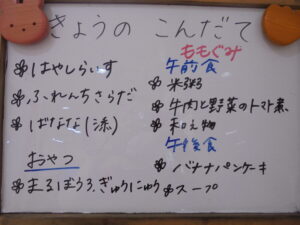 きょうの こんだて
はやしらいす
ふれんちさらだ
ばなな(添)
おやつ
まるぼうろ、ぎゅうにゅう
ももぐみ
午前食
米粥
牛肉と野菜のトマト煮
和え物
午後食
バナナパンケーキ
スープ